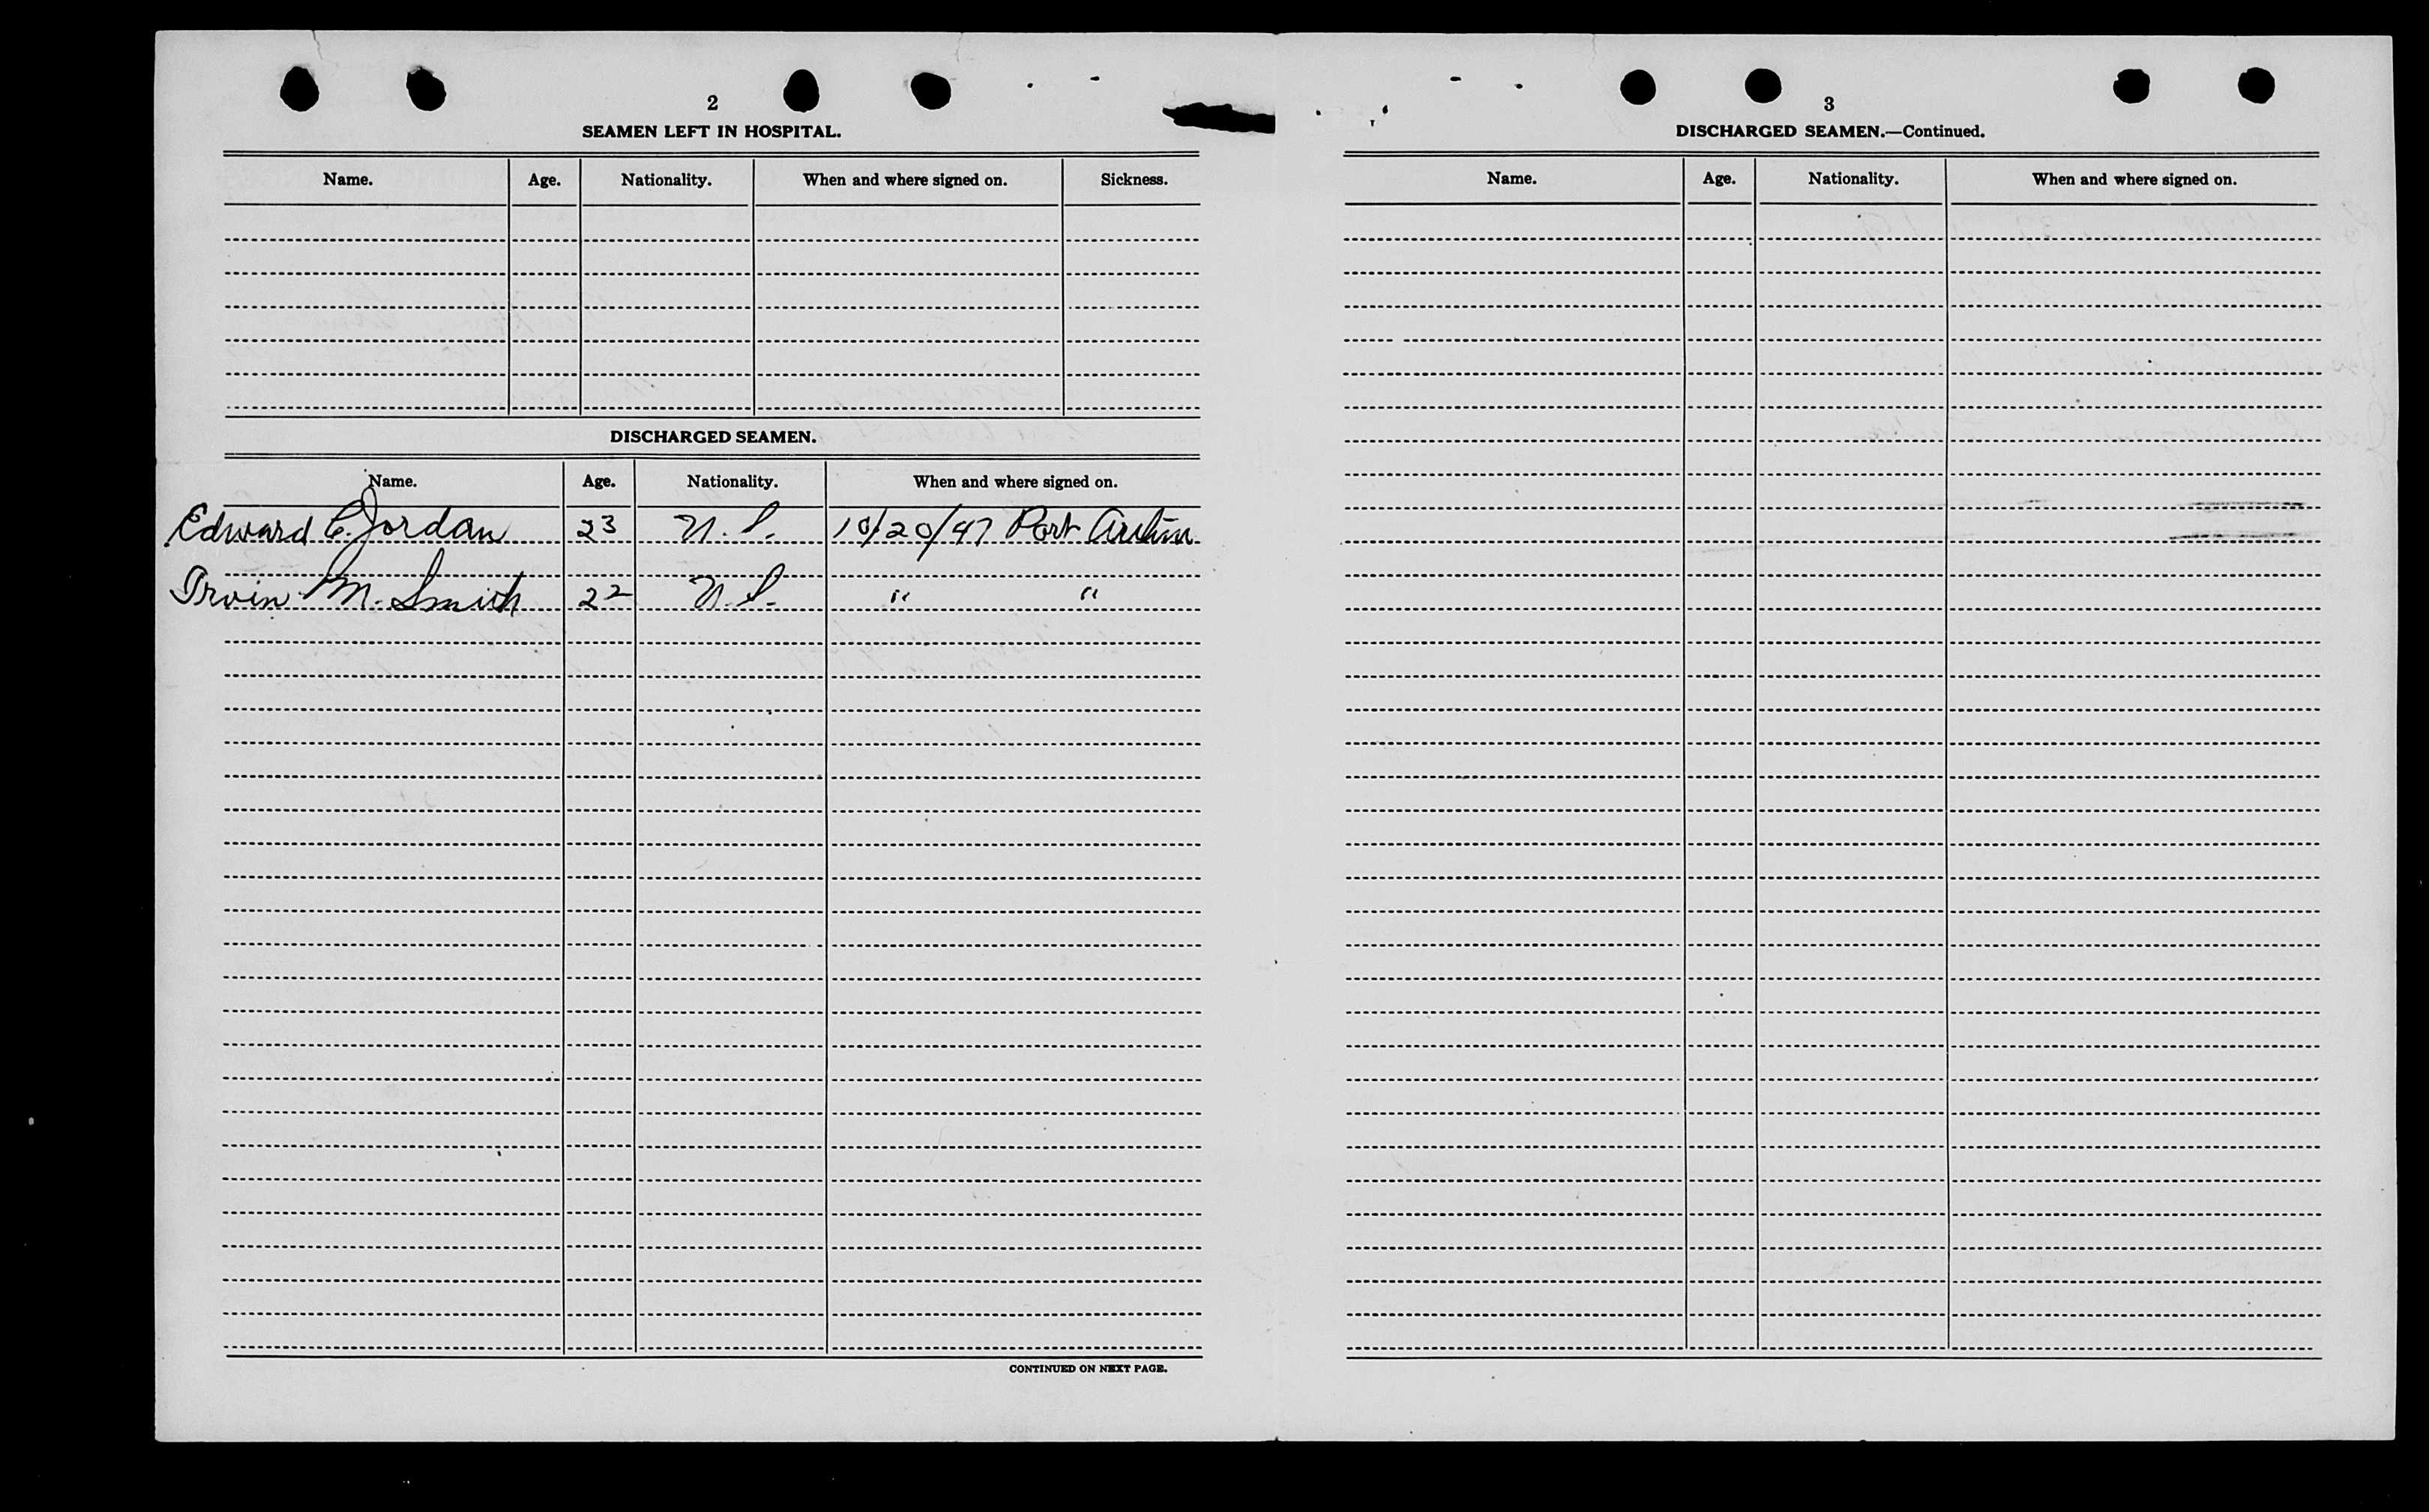 2
SEAMEN LEFT IN HOSPITAL.
Name. Age. Nationality. When and where signed on. Sickness.
DISCHARGED SEAMEN.
Name. Age. Nationality. When and where signed on.
Edward C. Jordan 23 U.S. 10/20/47 Port Arthur
Irvin M. Smith 22 U.S. " "
CONTINUED ON NEXT PAGE.
3
DISCHARGED SEAMEN.—Continued.
Name. Age. Nationality. When and where signed on.